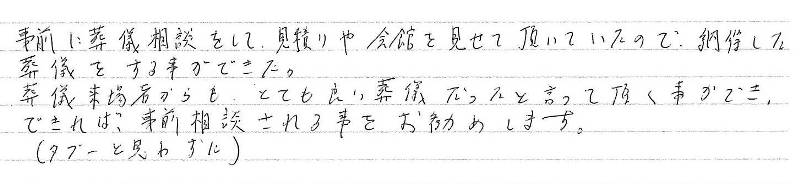 事前に葬儀相談をして、見積りや会館を見せて頂いていたので、納得した
葬儀をする事ができた。
葬儀来場者からも、とても良い葬儀だったと言って頂く事ができ、
できれば、事前相談される事をお勧めします。
(タブーと見わずに)